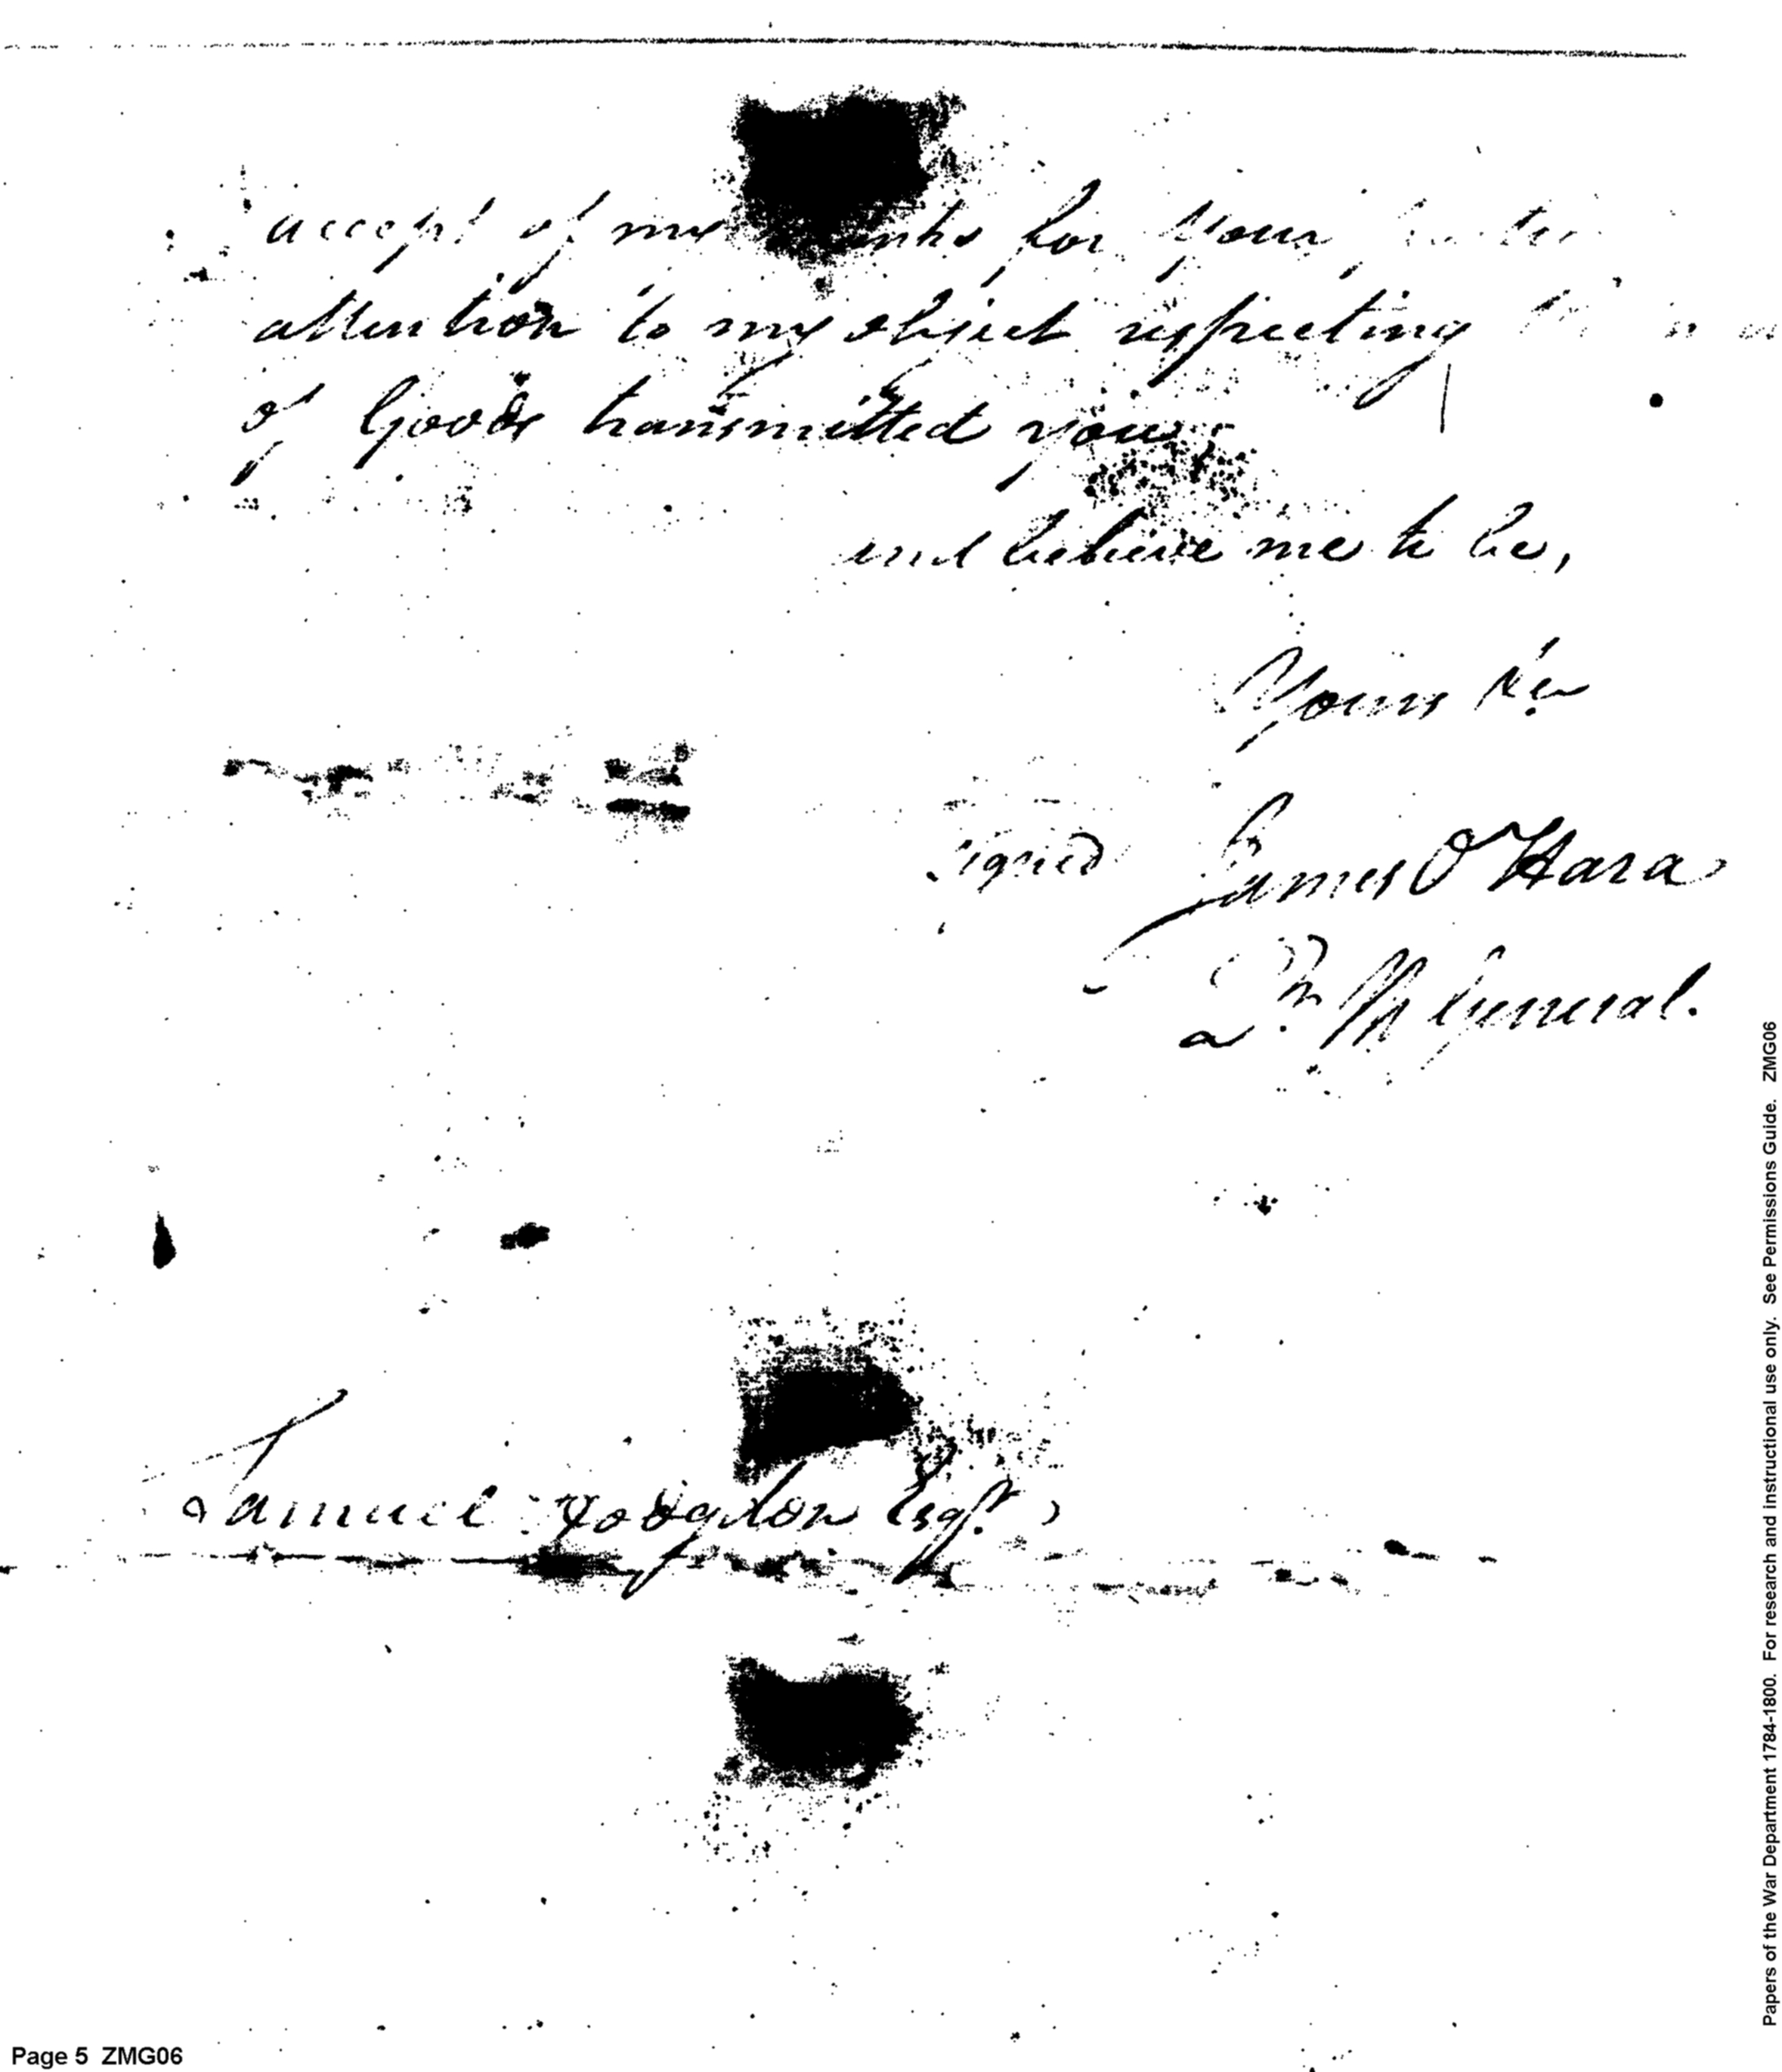 accept of my thanks for your
attention to my object respecting
of Goods transmitted you
and believe me to be,
Yours &c
signed James O'Hara
Qr. M General.
Samuel Hodgdon Esqr.
Papers of the War Department 1784-1800. For research and instructional use only. See Permissions Guide. ZMG06
Page 5 ZMG06